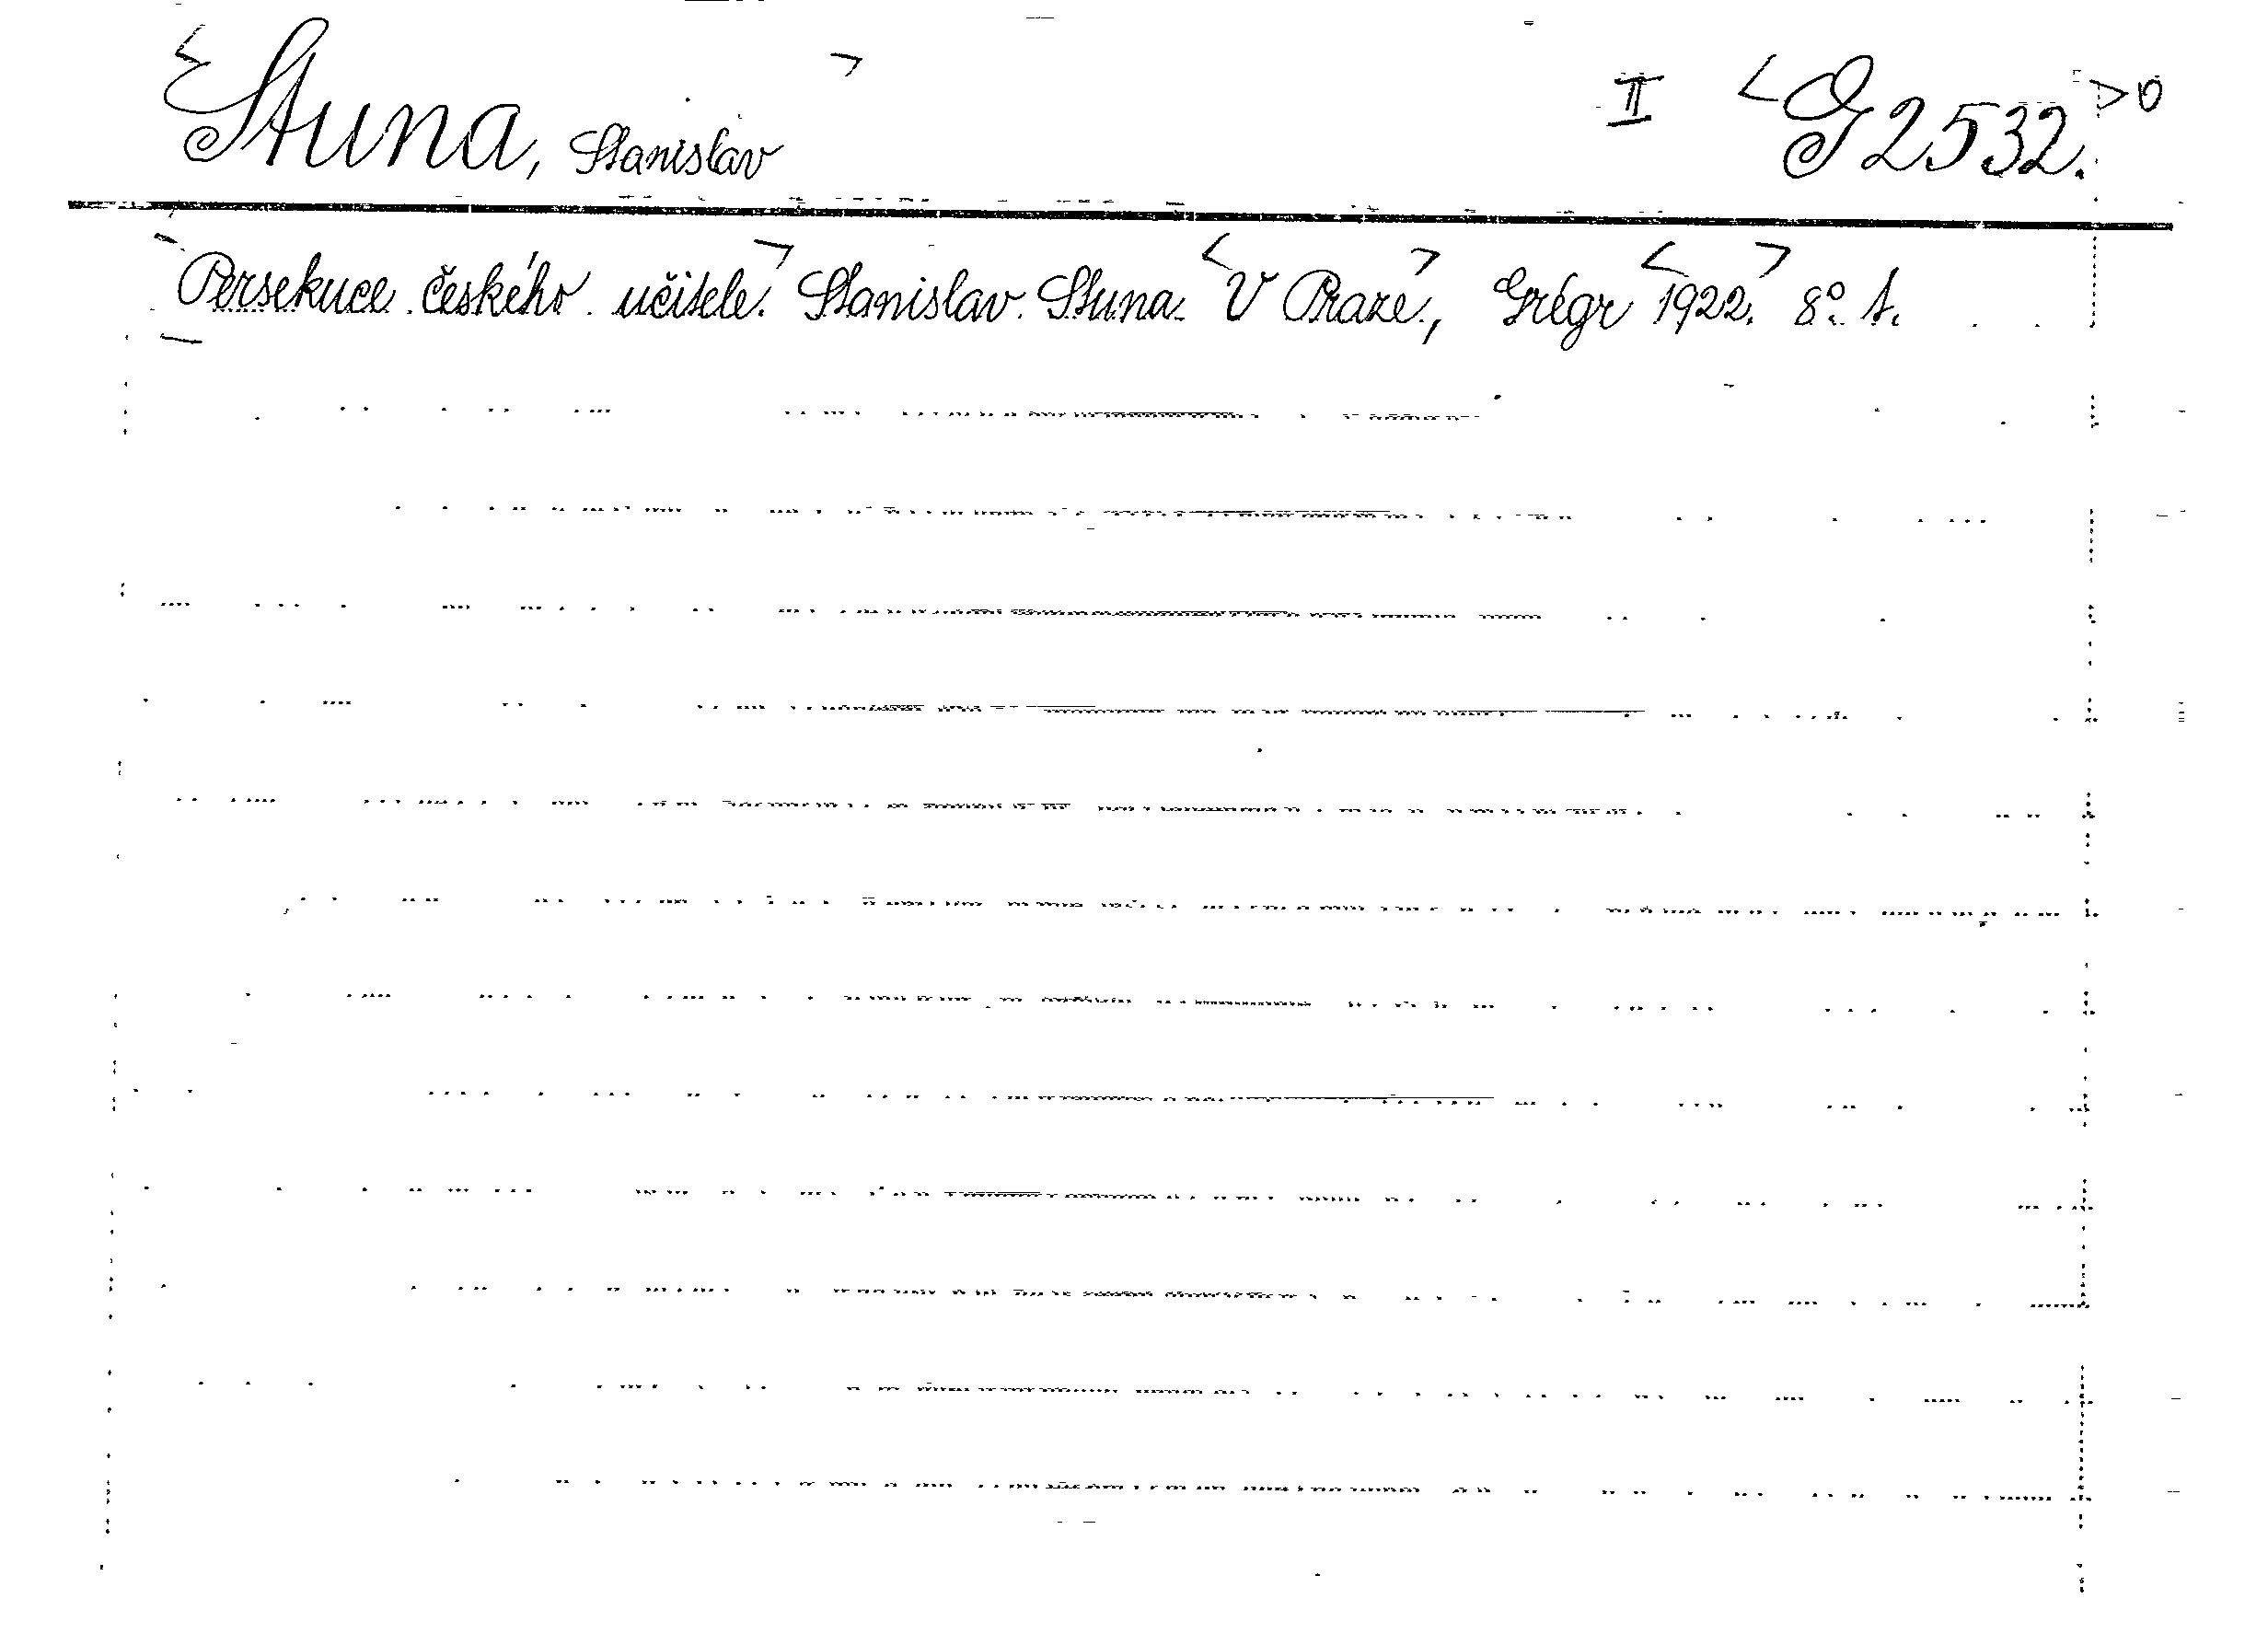 <Stuna, Stanislav> II <G 2532.>0
Persekuce českého učitele.> Stanislav Stuna. <V Praze,> Grégr <1922.> 8° s.